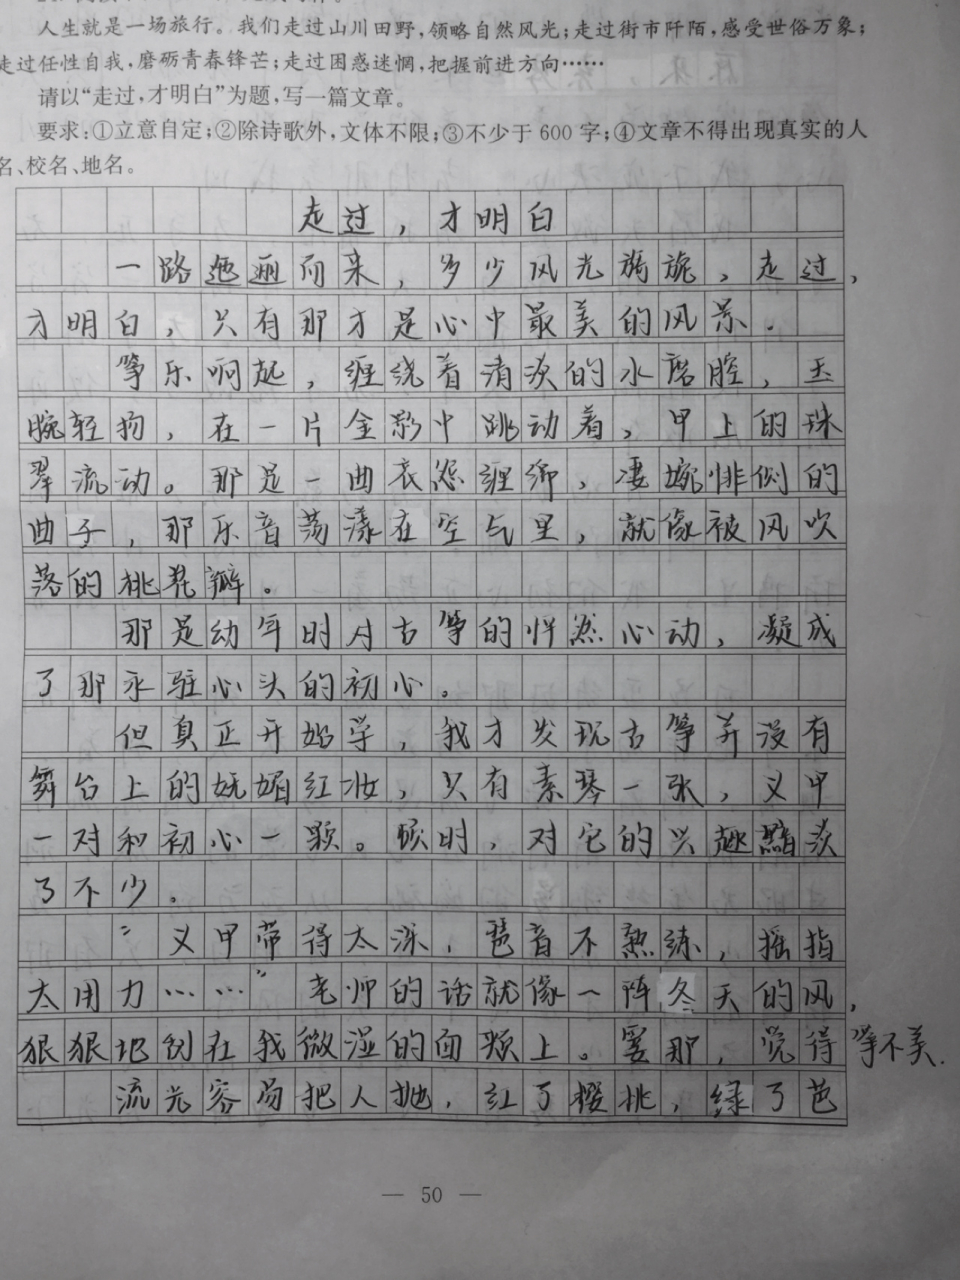 人生就是一场旅行。我们走过山川田野,领略自然风光;走过街市阡陌,感受世俗万象;
走过任性自我,磨砺青春锋芒;走过困惑迷惘,把握前进方向……
请以“走过,才明白”为题,写一篇文章。
要求:①立意自定;②除诗歌外,文体不限;③不少于600字;④文章不得出现真实的人
名、校名、地名。
走过,才明白
一路迤逦而来,多少风光旖旎,走过,
才明白,只有那才是心中最美的风景.
筝乐响起,缠绕着清淡的水磨腔,玉
腕轻拘,在一片金影中跳动着,甲上的珠
翠流动。那是一曲哀怨缠绵,凄婉悱恻的
曲子,那乐音荡漾在空气里,就像被风吹
落的桃花瓣。
那是幼年时对古筝的怦然心动,凝成
了那永驻心头的初心。
但真正开始学,我才发现古筝并没有
舞台上的妩媚红妆,只有素琴一张,义甲
一对和初心一颗。顿时,对它的兴趣黯淡
了不少。
“义甲带得太深,琶音不熟练,摇指
太用力……”老师的话就像一阵冬天的风,
狠狠地刮在我微湿的面颊上。霎那,觉得筝不美.
流光容易把人抛,红了樱桃,绿了芭
— 50 —